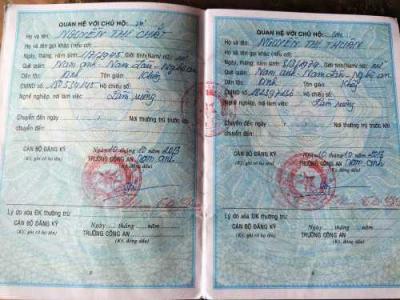 QUAN HỆ VỚI CHỦ HỘ:
Họ và tên: NGUYỄN THỊ CHẤT
Họ và tên gọi khác (nếu có):
Ngày, tháng, năm sinh: Giới tính: Nam/nữ:
Quê quán: Nam anh - Nam Đàn - Nghệ an
Dân tộc: Kinh Tôn giáo: Không
CMND số: Hộ chiếu số:
Nghề nghiệp, nơi làm việc: Làm ruộng
Chuyển đến ngày
Nơi thường trú trước khi
chuyển đến:
Ngày 10 tháng 10 năm 2013
CÁN BỘ ĐĂNG KÝ
(Ký, ghi rõ họ tên)
TRƯỞNG CÔNG AN
Nam anh
Lý do xóa ĐK thường trú:
Ngày.... tháng.... năm
CÁN BỘ ĐĂNG KÝ
(Ký, ghi rõ họ tên)
TRƯỞNG CÔNG AN
(Ký, đóng dấu)
QUAN HỆ VỚI CHỦ HỘ:
Họ và tên: NGUYỄN THỊ THUẬN
Họ và tên gọi khác (nếu có):
Ngày, tháng, năm sinh: Giới tính: Nam/nữ:
Quê quán: Nam anh - Nam Đàn - Nghệ an
Dân tộc: Kinh Tôn giáo: Không
CMND số: Hộ chiếu số:
Nghề nghiệp, nơi làm việc: Làm ruộng
Chuyển đến ngày
Nơi thường trú trước khi
chuyển đến:
Ngày 10 tháng 10 năm 2013
CÁN BỘ ĐĂNG KÝ
(Ký, ghi rõ họ tên)
TRƯỞNG CÔNG AN
Nam anh
Lý do xóa ĐK thường trú:
Ngày.... tháng.... năm
CÁN BỘ ĐĂNG KÝ
(Ký, ghi rõ họ tên)
TRƯỞNG CÔNG AN
(Ký, đóng dấu)